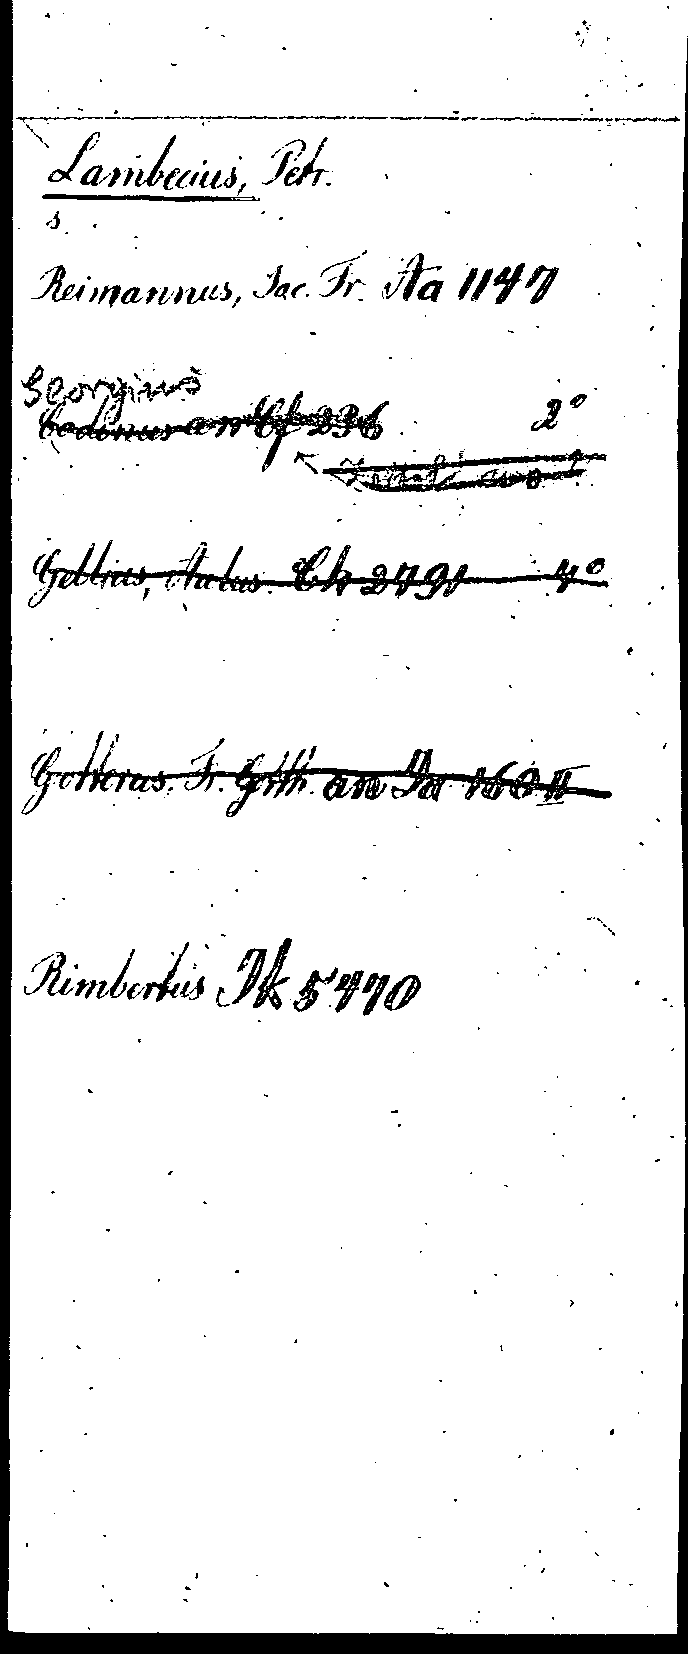 Lambecius, Petr.
s.
Reimannus, Jac. Fr. Aa 1147
Georgius
Codinus an Cf 236 2°
Gellius, Aulus. Ck 2791 4°
Gotterus. Fr. Gotth. an Ia 160 II
Rimbertus Ik 5470